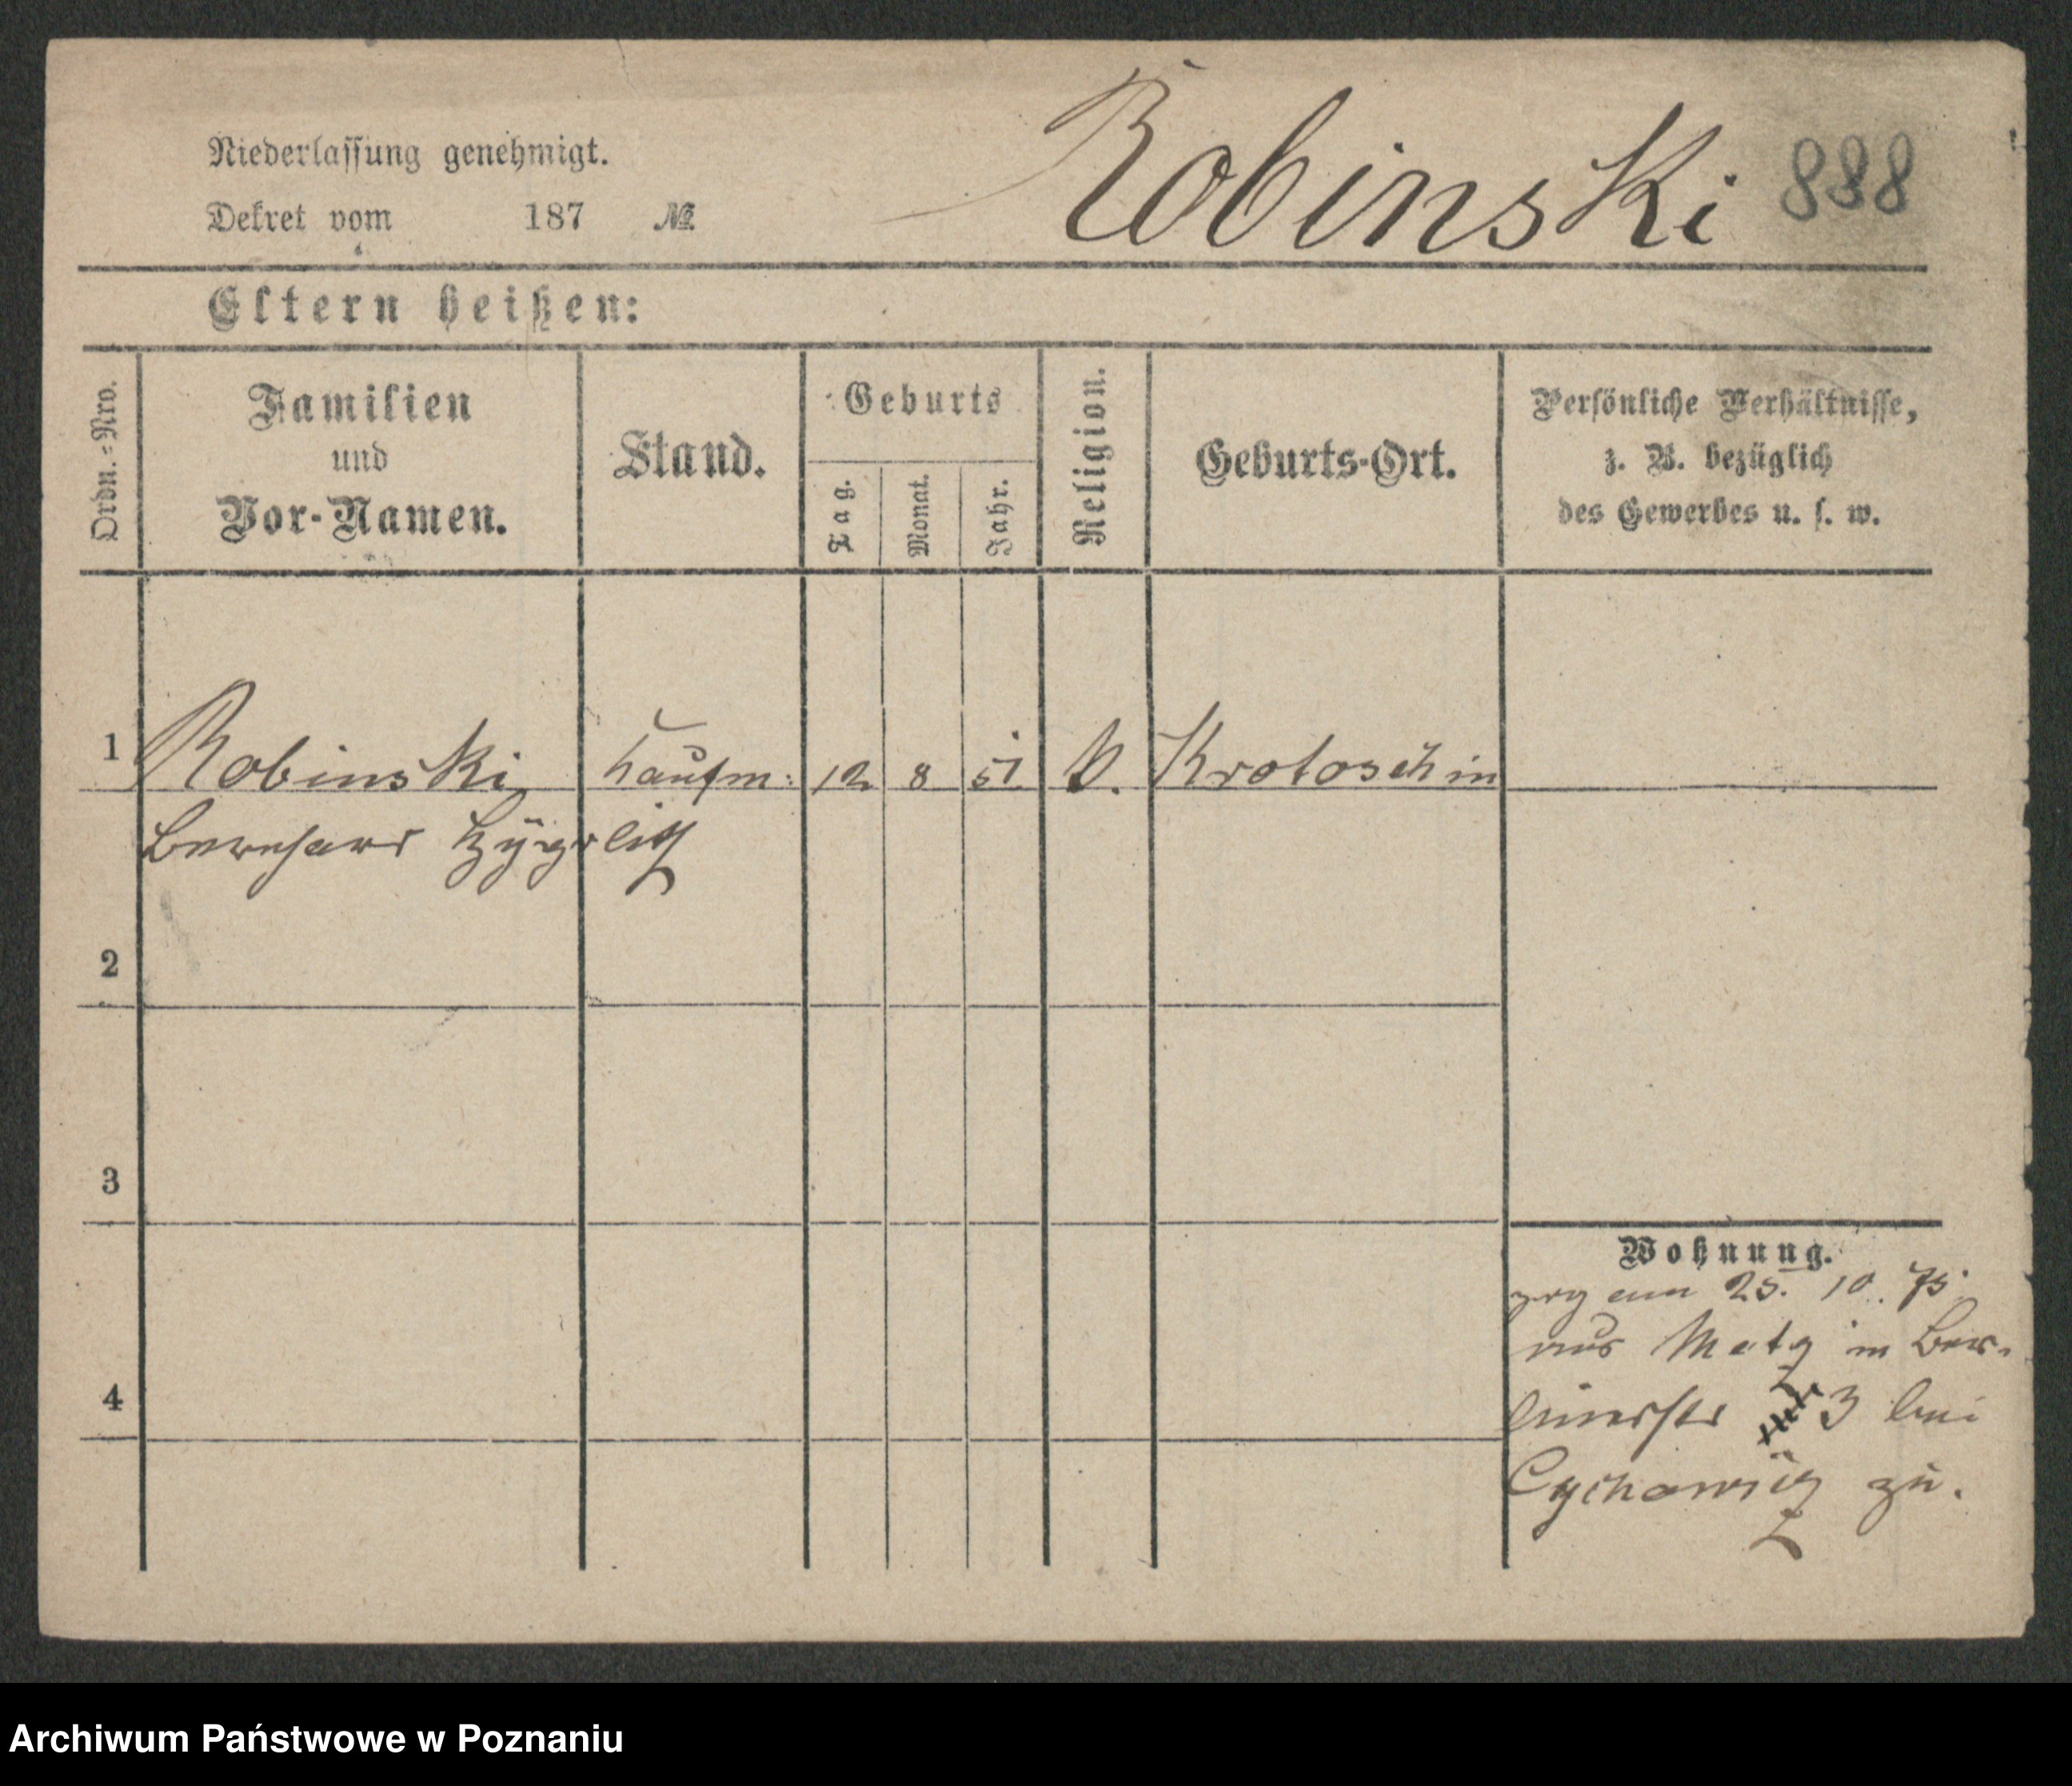 Niederlassung genehmigt.
Dekret vom 187 №
Robinski 888
Eltern heißen:
Ordn.=Nro.
Familien
und
Vor-Namen.
Stand.
Geburts
Tag.
Monat.
Jahr.
Religion.
Geburts-Ort.
Persönliche Verhältnisse,
z. B. bezüglich
des Gewerbes u. s. w.
1 Robinski Kaufm: 12 8 51 Krotoschin
Bernhard
2
3
4
Wohnung.
zog am 25. 10. 75.
aus Metz in Ber-
linerstr 3 bei
zu.